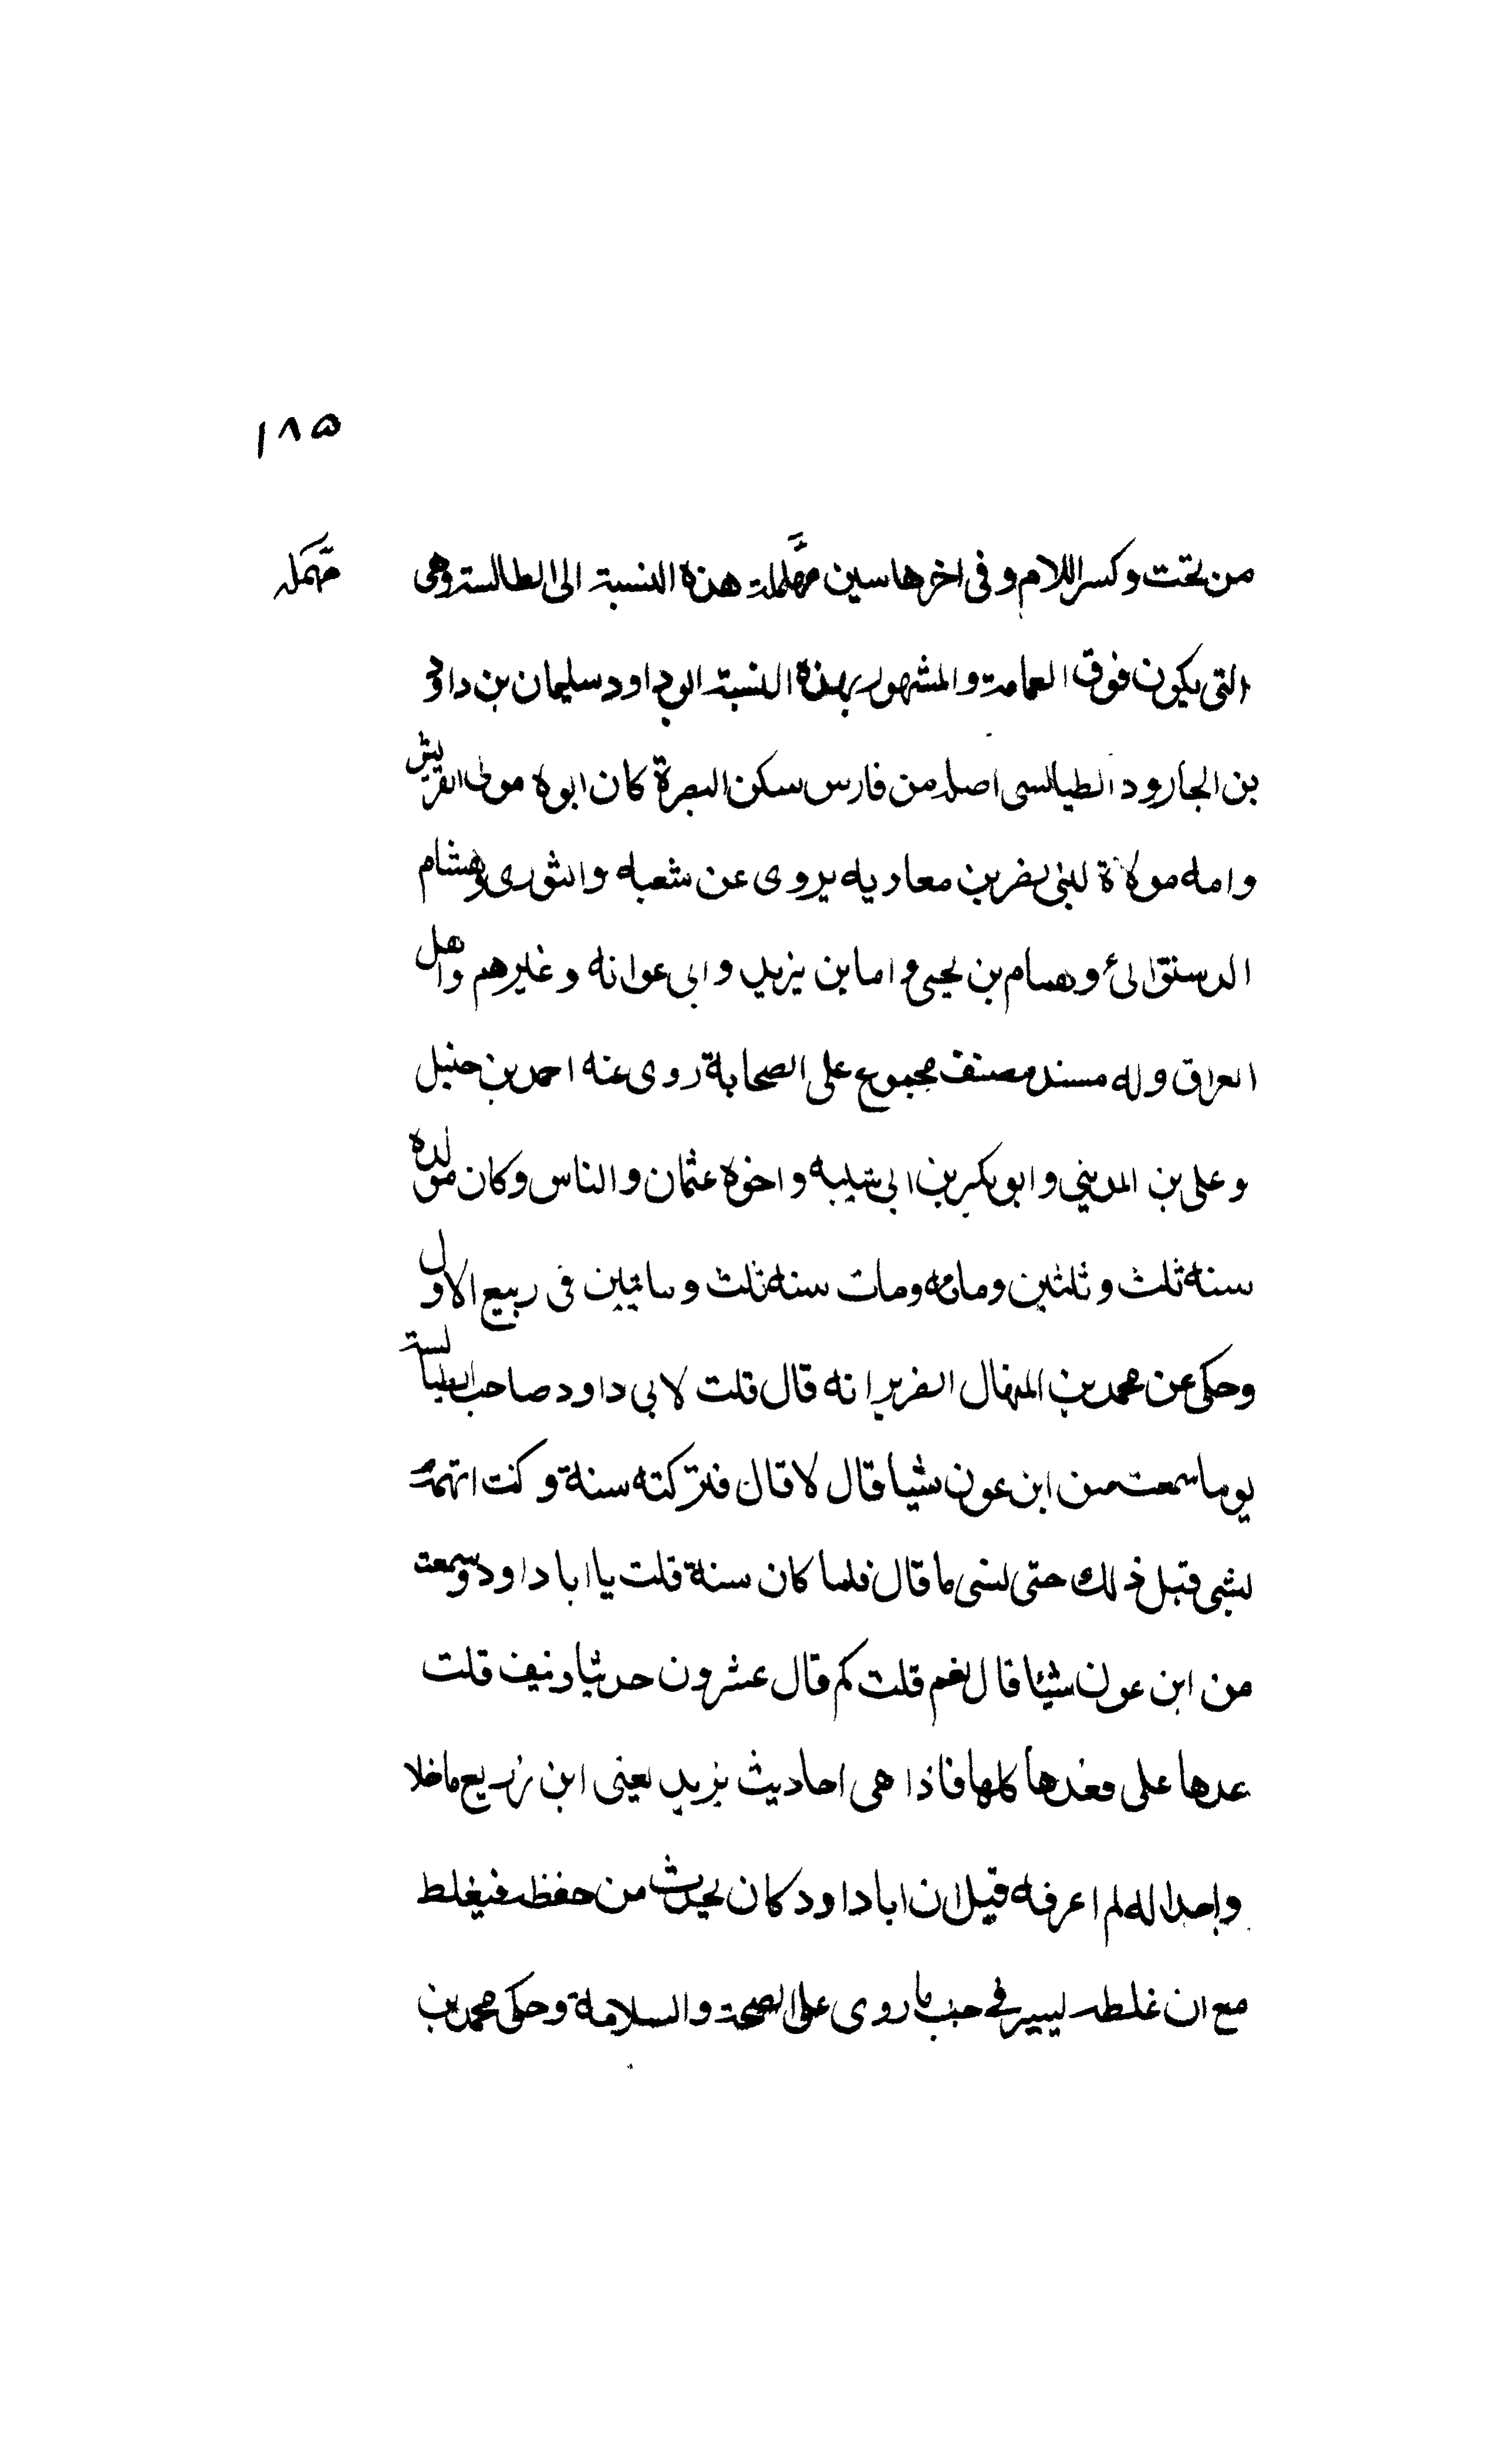 ١٨٥
من تحت وكسر اللام وفى اخرها سين مهملة هذه النسبة الى الطالسة وهى
مهمله
التى يكون فوق العمامة والمشهور بهذه النسبة ابو داود سليمان بن داود
بن الجارود الطيالسى اصله من فارس سكن البصرة كان ابوه مولى القريش
وامه مولاة لبنى نصر بن معاويه يروى عن شعبه والثورى وهشام
الدستوالىء وهمام بن يحيى و اما بن يزيد وابى عوانه وغيرهم واهل
العراق وله مسند مصنف مجموع على الصحابة روى عنه احمد بن حنبل
وعلى بن المدينى وابو بكر بن ابى شيبه واخوه عثمان والناس وكان مولده
سنه ثلث وثلثين ومائه ومات سنه ثلث ومايتين فى ربيع الاول
وحكى عن محمد بن المنهال الضرير انه قال قلت لابى داود صاحب الطيالسة
يوما سمعت من ابن عون شيا قال لا قال فتركته سنة وكنت اتهمه
بشى قبل ذلك حتى نسى ما قال فلما كان سنة قلت يا ابا داود وسمعت
من ابن عون شيئا قال نعم قلت كم قال عشرون حديثا ونيف قلت
عدها على فعدها كلها فاذا هى احاديث يزيد يعنى ابن زريع ماخلا
واحدا له لم اعرفه قيل ان ابا داود كان يحدث من حفظه فيغلط
مع ان غلطه يسير فى جنب ما روى على الصحة والسلامة وحكى محمد بن